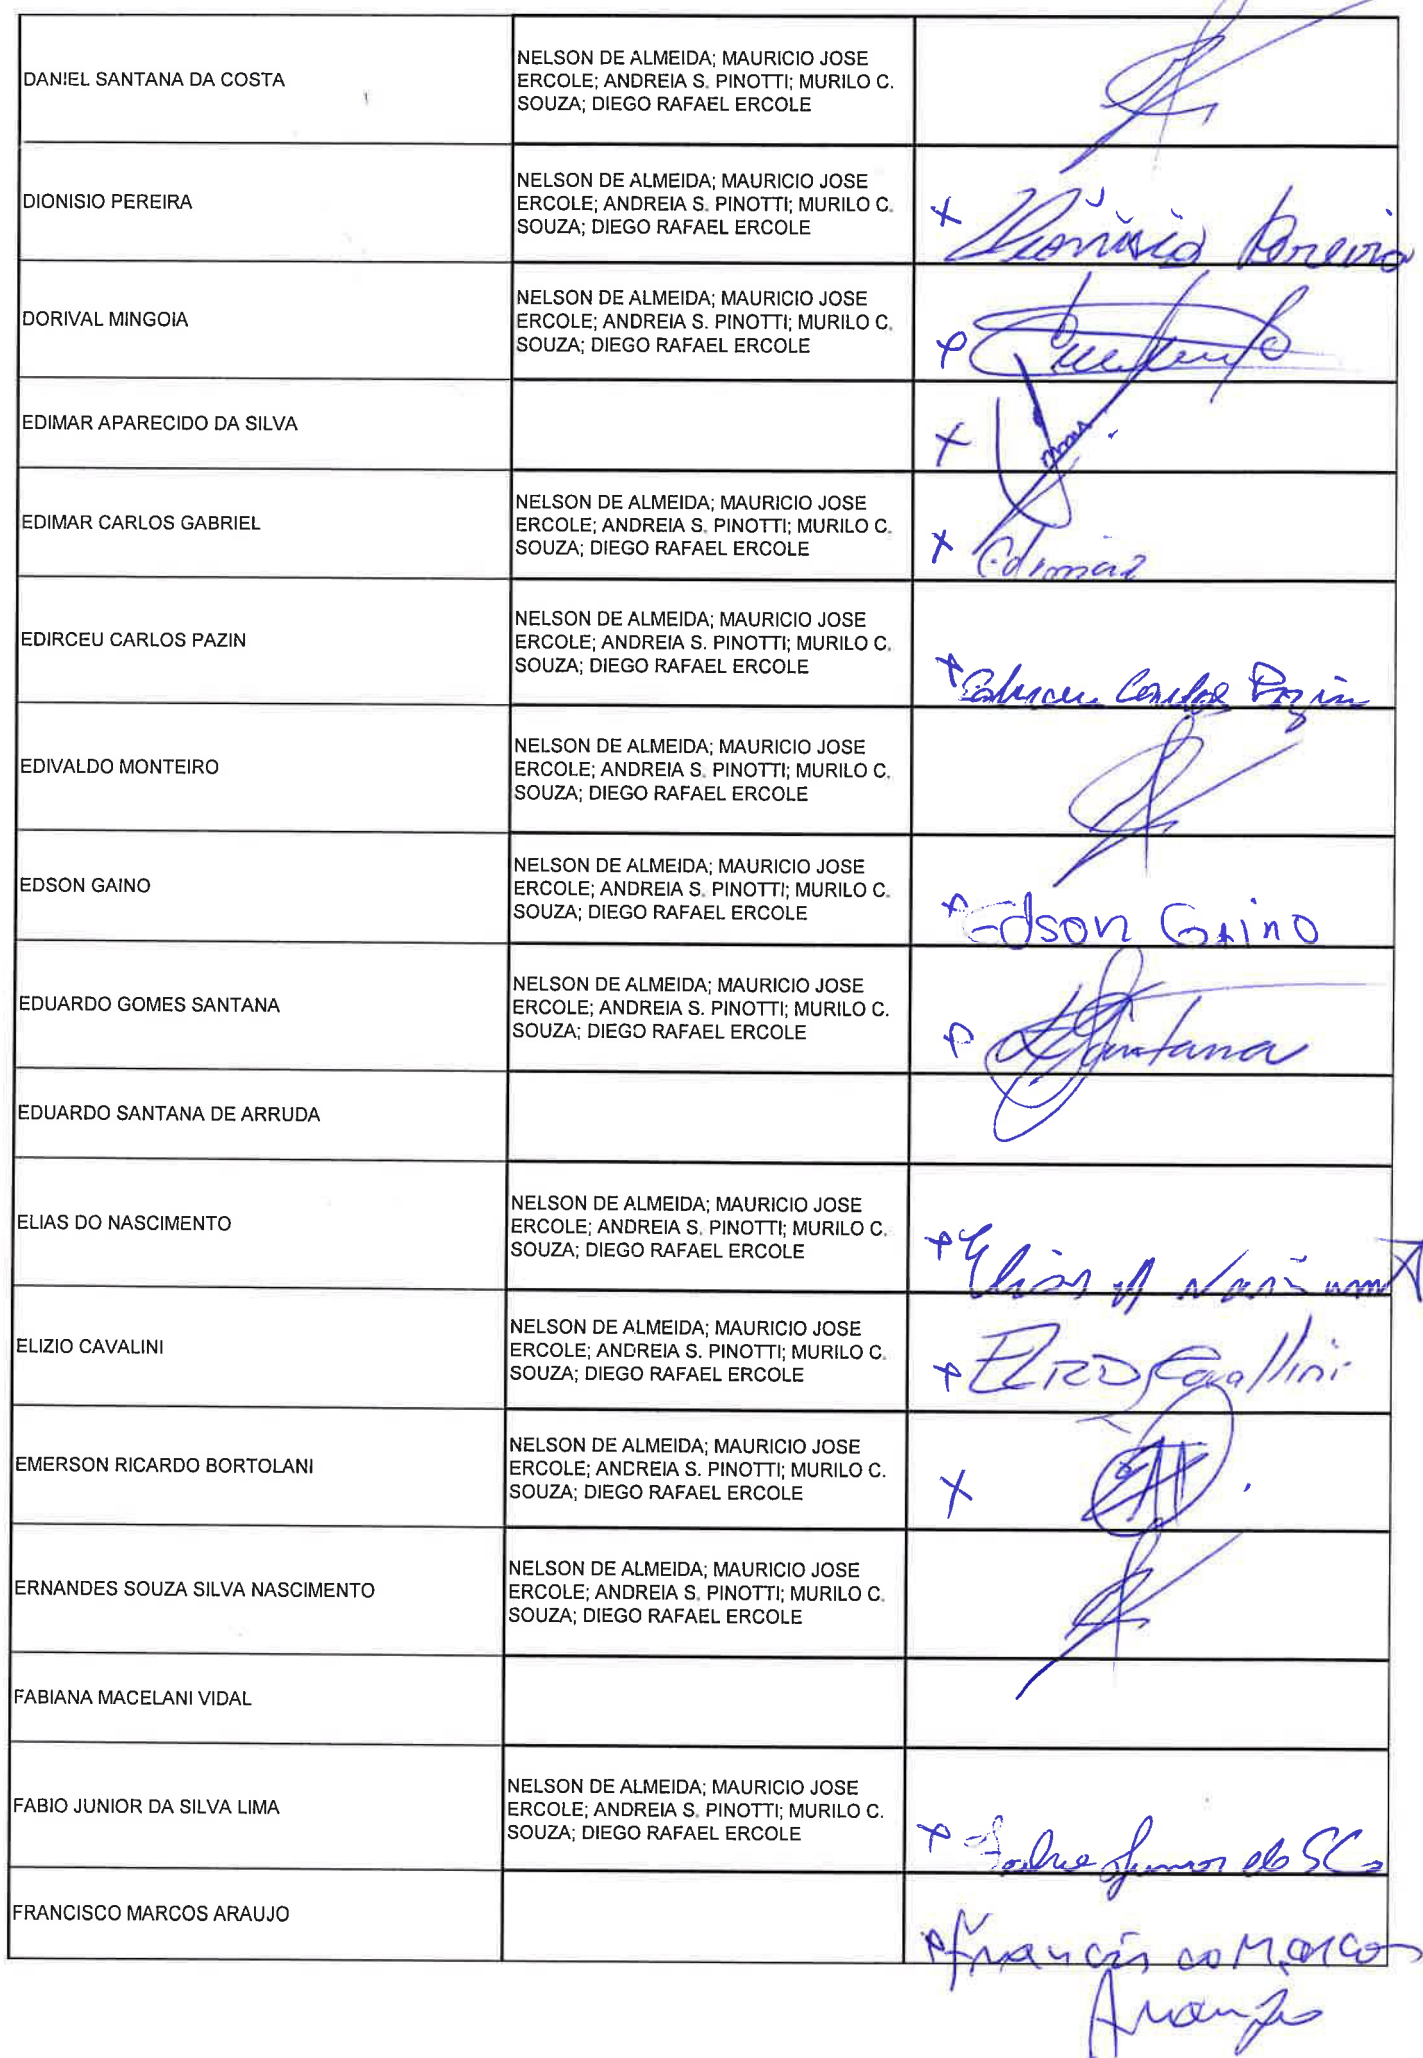 DANIEL SANTANA DA COSTA
NELSON DE ALMEIDA; MAURICIO JOSE
ERCOLE; ANDREIA S. PINOTTI; MURILO C.
SOUZA; DIEGO RAFAEL ERCOLE
DIONISIO PEREIRA
NELSON DE ALMEIDA; MAURICIO JOSE
ERCOLE; ANDREIA S. PINOTTI; MURILO C.
SOUZA; DIEGO RAFAEL ERCOLE
x Dionisio Pereira
DORIVAL MINGOIA
NELSON DE ALMEIDA; MAURICIO JOSE
ERCOLE; ANDREIA S. PINOTTI; MURILO C.
SOUZA; DIEGO RAFAEL ERCOLE
x
EDIMAR APARECIDO DA SILVA
x
EDIMAR CARLOS GABRIEL
NELSON DE ALMEIDA; MAURICIO JOSE
ERCOLE; ANDREIA S. PINOTTI; MURILO C.
SOUZA; DIEGO RAFAEL ERCOLE
x Edimar
EDIRCEU CARLOS PAZIN
NELSON DE ALMEIDA; MAURICIO JOSE
ERCOLE; ANDREIA S. PINOTTI; MURILO C.
SOUZA; DIEGO RAFAEL ERCOLE
x Edirceu Carlos Pazin
EDIVALDO MONTEIRO
NELSON DE ALMEIDA; MAURICIO JOSE
ERCOLE; ANDREIA S. PINOTTI; MURILO C.
SOUZA; DIEGO RAFAEL ERCOLE
EDSON GAINO
NELSON DE ALMEIDA; MAURICIO JOSE
ERCOLE; ANDREIA S. PINOTTI; MURILO C.
SOUZA; DIEGO RAFAEL ERCOLE
x Edson GAINO
EDUARDO GOMES SANTANA
NELSON DE ALMEIDA; MAURICIO JOSE
ERCOLE; ANDREIA S. PINOTTI; MURILO C.
SOUZA; DIEGO RAFAEL ERCOLE
x Santana
EDUARDO SANTANA DE ARRUDA
ELIAS DO NASCIMENTO
NELSON DE ALMEIDA; MAURICIO JOSE
ERCOLE; ANDREIA S. PINOTTI; MURILO C.
SOUZA; DIEGO RAFAEL ERCOLE
x Elias
ELIZIO CAVALINI
NELSON DE ALMEIDA; MAURICIO JOSE
ERCOLE; ANDREIA S. PINOTTI; MURILO C.
SOUZA; DIEGO RAFAEL ERCOLE
x Cavallini
EMERSON RICARDO BORTOLANI
NELSON DE ALMEIDA; MAURICIO JOSE
ERCOLE; ANDREIA S. PINOTTI; MURILO C.
SOUZA; DIEGO RAFAEL ERCOLE
x
ERNANDES SOUZA SILVA NASCIMENTO
NELSON DE ALMEIDA; MAURICIO JOSE
ERCOLE; ANDREIA S. PINOTTI; MURILO C.
SOUZA; DIEGO RAFAEL ERCOLE
FABIANA MACELANI VIDAL
FABIO JUNIOR DA SILVA LIMA
NELSON DE ALMEIDA; MAURICIO JOSE
ERCOLE; ANDREIA S. PINOTTI; MURILO C.
SOUZA; DIEGO RAFAEL ERCOLE
x
FRANCISCO MARCOS ARAUJO
x Francisco Marcos
Araujo